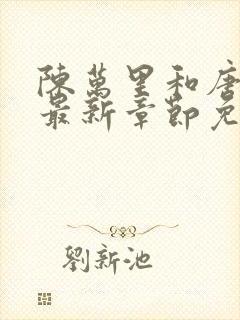 陳萬里和唐
最新章節免
劉新池